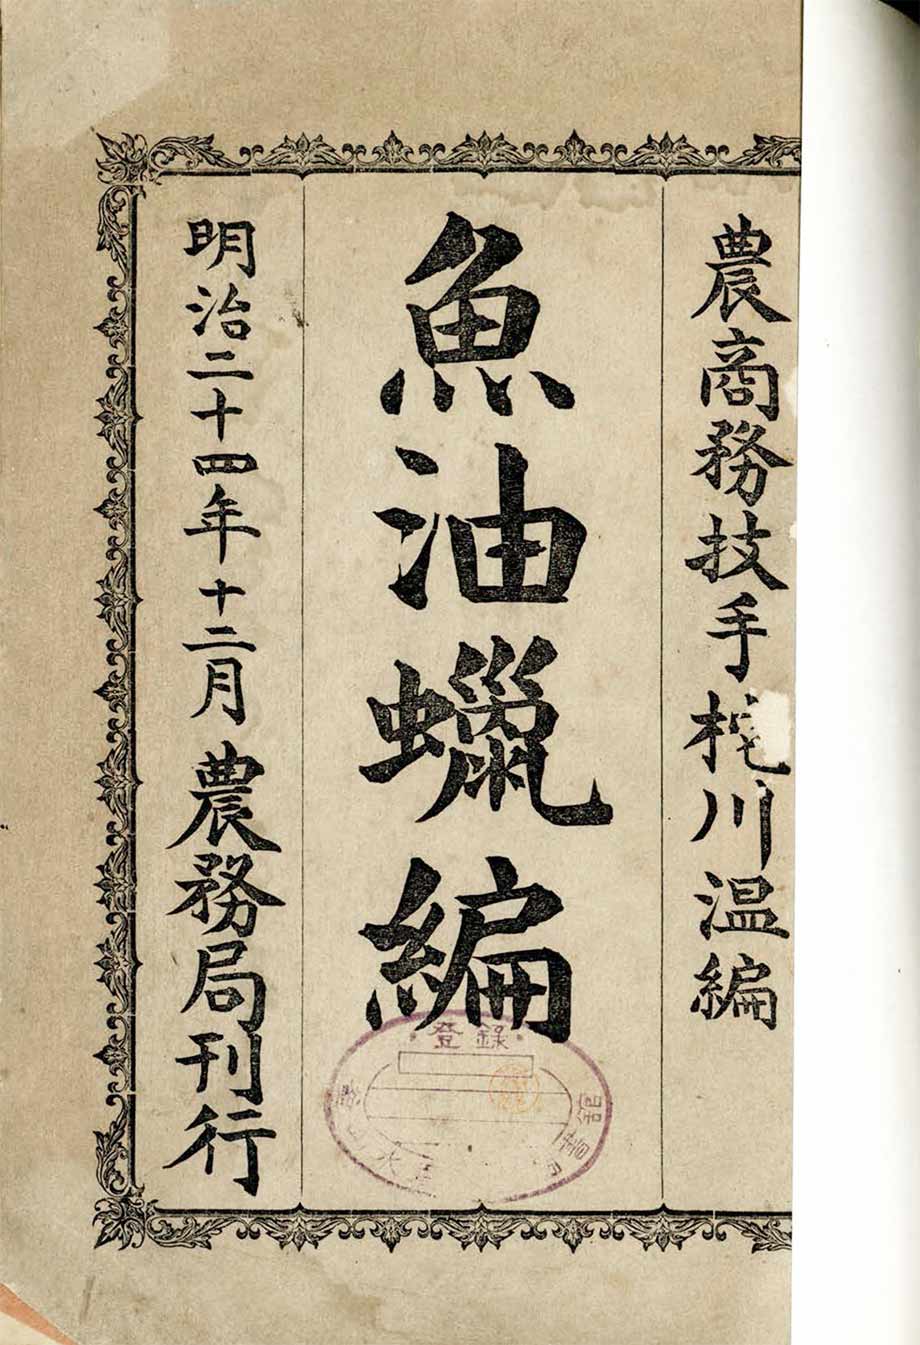 農商務技手梶川温編
魚油蠟編
明治二十四年十二月農務局刊行
登錄